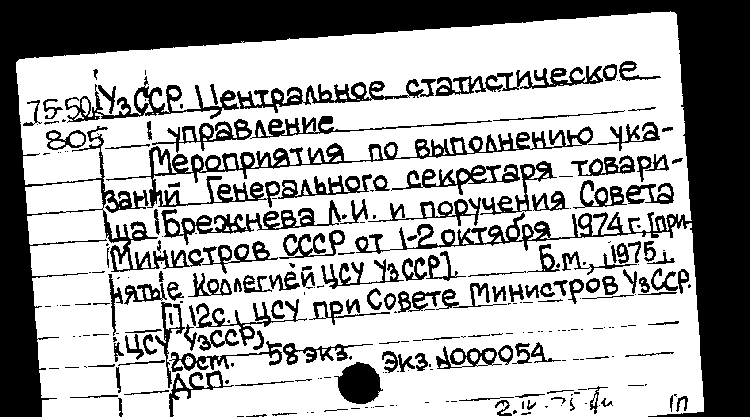 75-50к УзССР. Центральное статистическое
805 управление.
Мероприятия по выполнению ука-
заний Генерального секретаря товари-
ща Брежнева Л.И. и поручения Совета
Министров СССР от 1-2 октября 1974 г., [при-
нятые Коллегией ЦСУ УзССР]. Б.м., [1975].
[1], 12с. (ЦСУ при Совете Министров УзССР.
(ЦСУ УзССР).
20 ст. 58 экз. Экз. N000054.
ДСП.
2.IV-75 1п